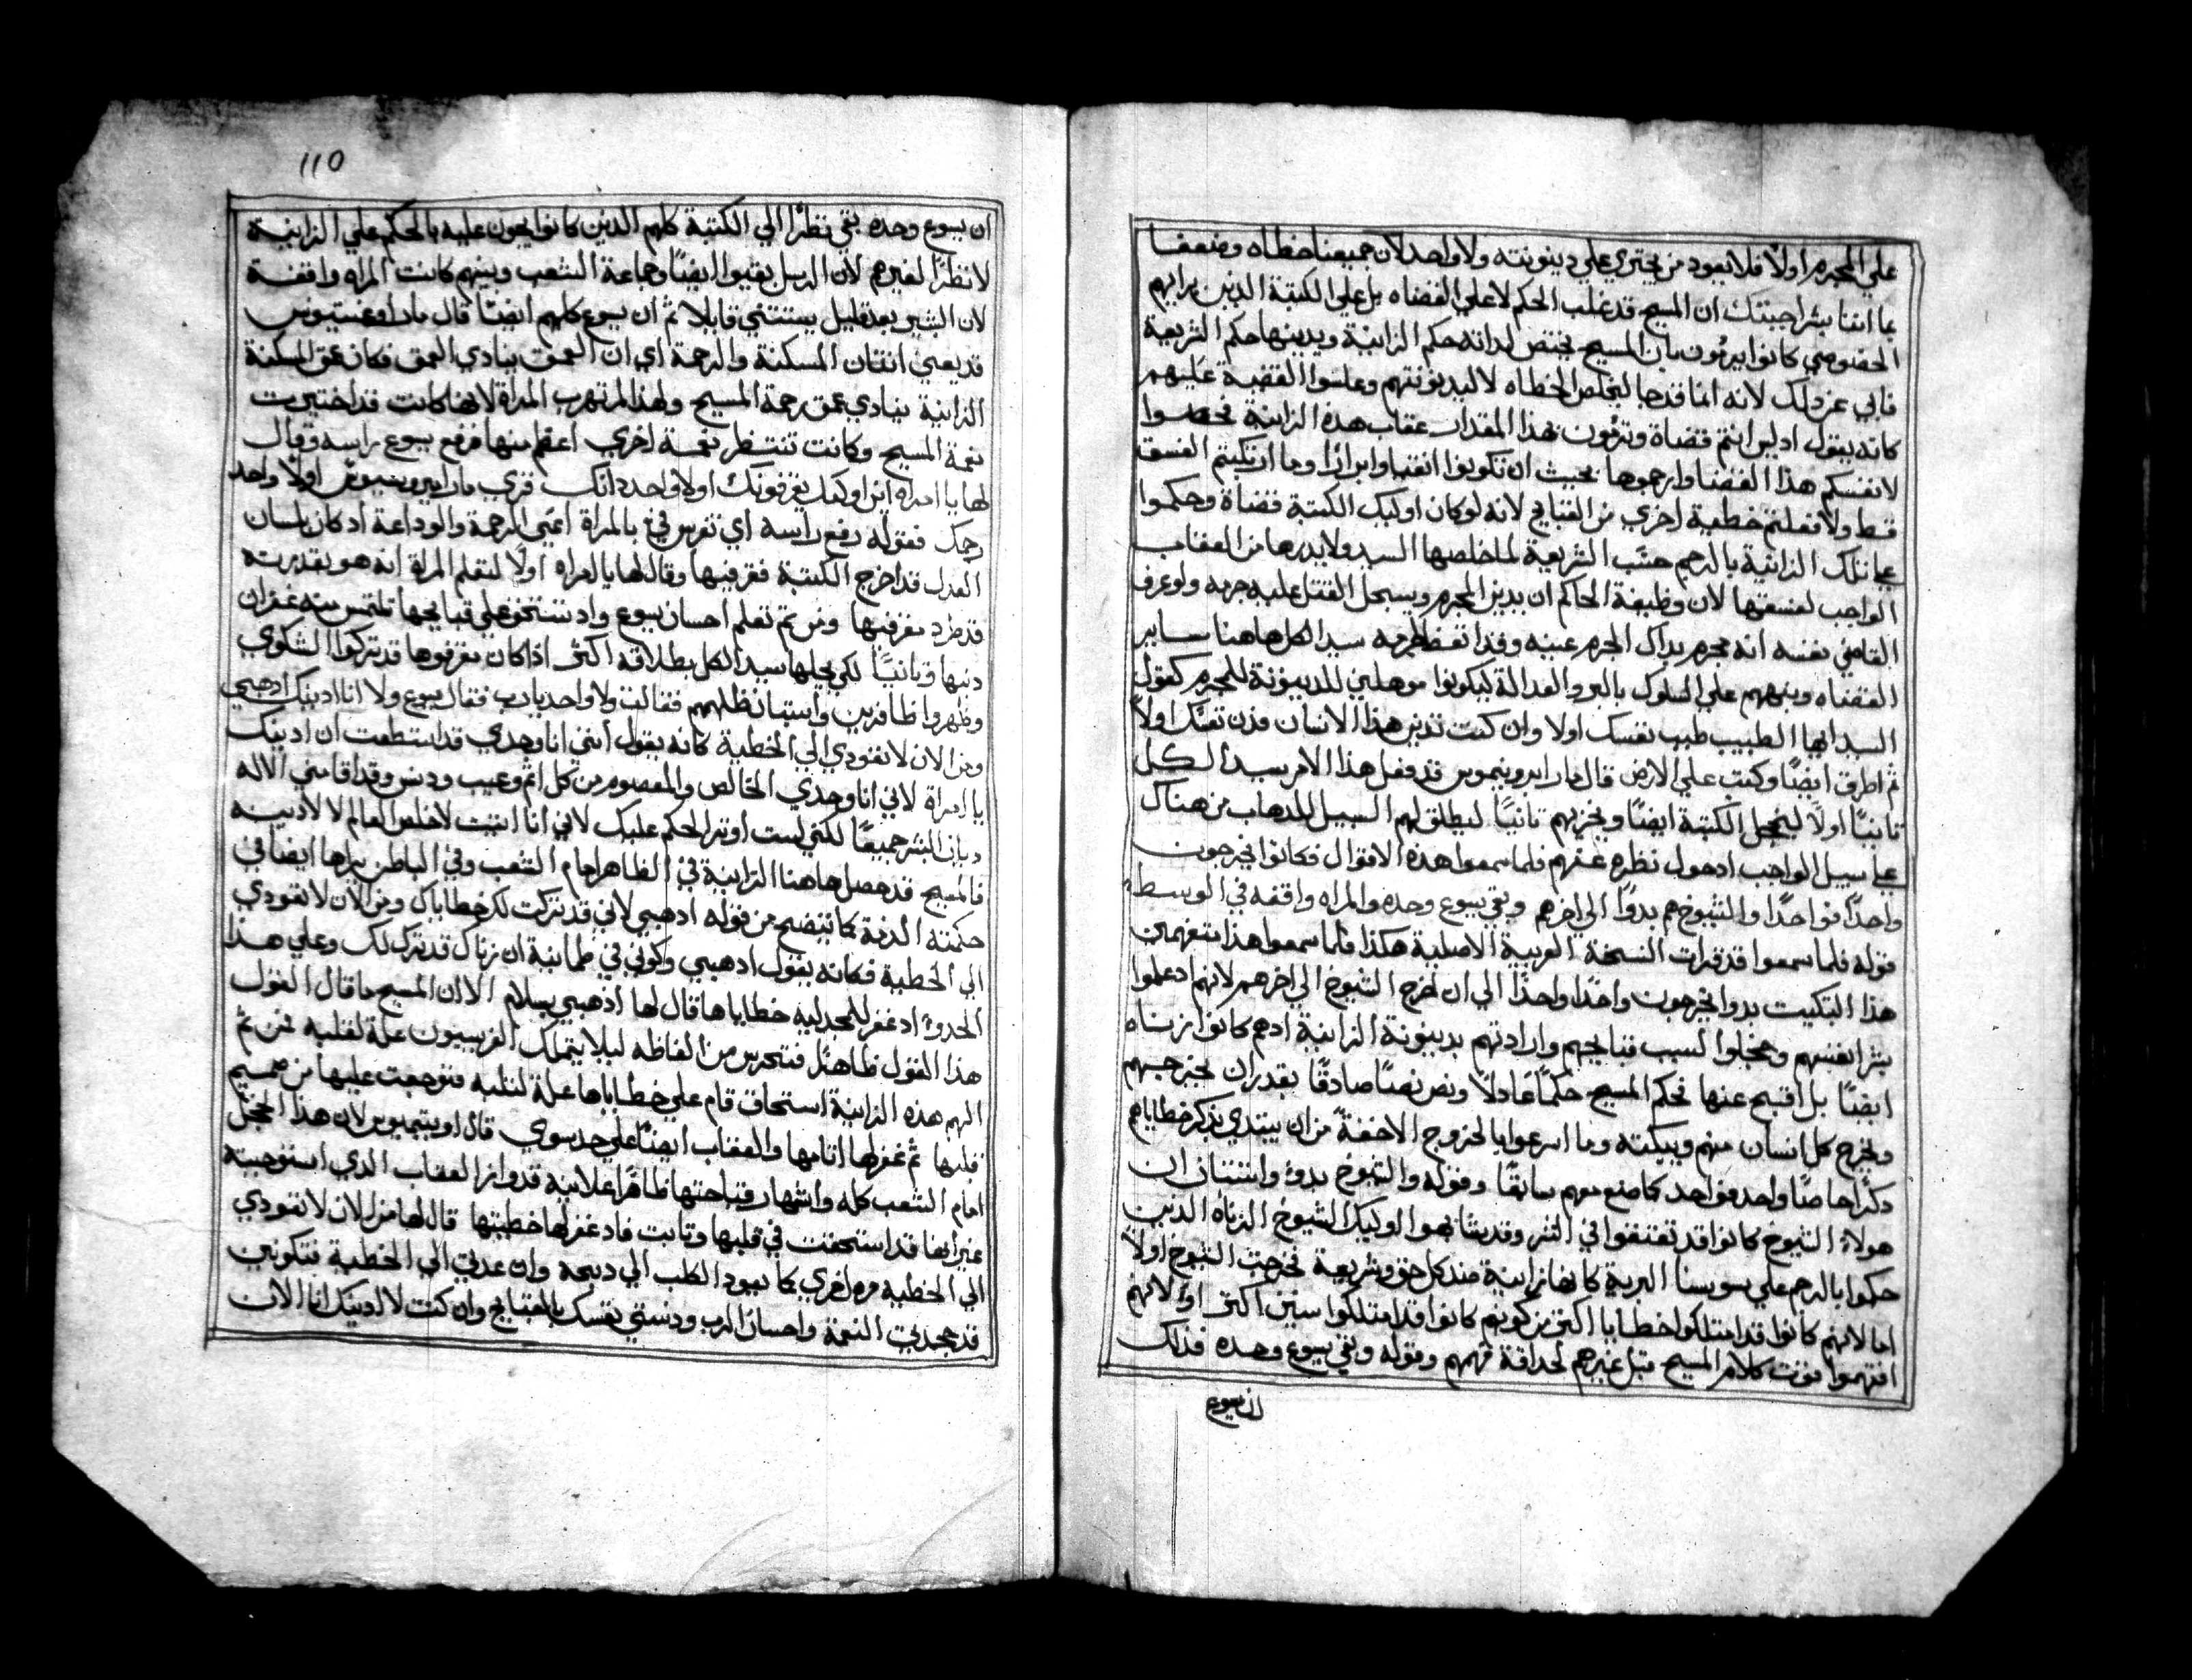 علي المجرم اولًا فلا يعود من يجتري علي دينونته ولا واحد لان جميعنا خطاه وضعفا
بما اننا بشر اجبتك ان المسيح قد غلب الحكم لا علي القضاه بل علي الكتبة الذين برايهم
الخصوصي كانوا يريدون بان المسيح يختص لذاته حكم الزانية ويدينها حكم الشريعة
فابي عن ذلك لانه انما قد جا ليخلص الخطاه لا ليدينونتهم وعلموا القضية عليهم
كانه يقول اد ليس انتم قضاة وترون بهذا المقدار عقاب هذه الزانية فخصصوا
لانفسكم هذا القضا وارجموها بحيث ان تكونوا انقيا وابرارًا وما ارتكبتم الفسق
قط ولا فعلتم خطية اخري من القبايح لانه لو كان اوليك الكتبة قضاة وحكموا
علي تلك الزانية بالرجم حسَب الشريعة لما خلصها السيد ولا يدرها من العقاب
الواجب لفسقها لان وظيفة الحاكم ان يدين المجرم ويسجل القتل عليه جزمه ولو عرف
القاضي نفسه انه مجرم بداك الجرم عينه وقد اتعظ سيد الكل هاهنا ساير
القضاه وينبههم علي السلوك بالبر والعدالة ليكونوا موهلين للدينونة للمجرم كقول
السيد ايها الطبيب طبب نفسك اولا وان كنت تدين هذا الانسان فدن نفسك اولاً
ثم اطرق ايضًا وكتب علي الارض قال مار ايرونيموس قد فعل هذا الامر سيد الكل
ثانيًا اولًا ليخجل الكتبة ايضًا ويخزيهم ثانيًا ليطلق لهم السبيل للدهاب من هناك
علي سبيل الواجب اد حول نظره عنهم فلما سمعوا هذه الاقوال فكانوا يخرجون
واحدًا فواحدًا والشيوخ هم بدوًا الي اخرهم وبقي يسوع وحده والمراه واقفه في الوسط
قوله فلما سمعوا قد قرات النسخة العربية الاصلية هكذا فلما سمعوا هذا متفهمين
هذا التبكيت بدوا يخرجون واحدًا واحدًا الي ان خرج الشيوخ الي اخرهم لانهم اد علموا
بشر انفسهم وخجلوا لسبب قبايحهم وارادتهم بدينونة الزانية ادهم كانوا زناه
ايضًا بل اقبح عنها فحكم المسيح حكمًا عادلًا ونص نصًا صادقًا بقدر ان يخرجهم
ويخرج كل انسان منهم ويبكته وما اسرعوا بالخروج الا خفةً من ان يبتدي بذكر خطاياهم
دكرًا خاصًا واحد فواحد كما صنع معهم سابقًا وقوله والشيوخ بدو واستتنا ان
هولاء الشيوخ كانوا قد تعتقوا في الشر وقد يشابهوا اوليك الشيوخ الزناه الذين
حكموا بالرجم علي سوسنا البرية كانها زانية ضد كل حق وشريعة فخرجت الشيوخ اولاً
اما لانهم كانوا قد امتلكوا خطايا اكثر من كونهم كانوا قد امتلكوا سنين اكثر او لانهم
افتهموا قوت كلام المسيح قبل غيرهم لحداقة فهمهم وقوله وبقي يسوع وحده فذلك
ان يسوع
110
ان يسوع وحده بقي نظرًا الي الكتبة كلهم الدين كانوا يلحون عليه بالحكم علي الزانية
لا نظرًا لغيرهم لان الرسل بقيوا ايضًا وجماعة الشعب وبينهم كانت المراه واقفة
لان البشير بعد قليل يستتني قايلا ثم ان يسوع كلمهم ايضًا قال مار اوغستينوس
قد يعني اتنان المسكنة والرحمة اي ان العمق ينادي العمق فكان عمق المسكنة
الزانية ينادي عمق رحمة المسيح ولهذا لم تهرب المراة لانها كانت قد اختبرت
نعمة المسيح وكانت تنتظر نعمة اخري اعظم منها فرفع يسوع راسه وقال
لها يا امراه اين اوليك يقرفونك اولا واحد دانك قري مار ايرونيموس اولا واحد
رجمك فقوله رفع راسه اي تفرس في بالمراة اعني الرحمة والوداعة اد كان بلسان
العدل قد اخرج الكتبة مقرفيها وقال لها يا امراه اولًا لتعلم المراة انه هو بقدرته
قد طرد مقرفيها ومن تم تعلم احسان يسوع واد تستخف علي قبايحها تلتمس منه غفران
دنبها وثانيًا لكي يحلها سيد الكل بطلاقه اكثر اذا كان مقرفوها قد تركوا الشكوي
وظهروا ظافرين واستبان ظلمهم فقالت ولا واحد يارب فقال يسوع ولا انا ادينك ادهبي
ومن الان لا تعودي الي الخطية كانه يقول انني انا وحدي قد استطعت ان ادينك
يا امراة لاني انا وحدي الخالص والمعصوم من كل اثم وعيب ودنس وقد اقامني الاله
ديان البشر جميعًا لكني لست اوتر الحكم عليك لاني انا اتيت لاخلص العالم لا لادينه
فالمسيح قد حصل هاهنا الزانية في الظاهر امام الشعب وفي الباطن براها ايضا في
حكمته الدمة كما يتضح من قوله ادهبي لاني قد تركت لك خطاياك ومن الان لا تعودي
الي الخطية فكانه يقول ادهبي وكوني في طمانينة ان زناك قد ترك لك وعلي هذا
الحدو اد غفر للمجدليه خطاياها قال لها اذهبي بسلام الا ان المسيح ما قال القول
هذا القول ظاهرًا فتحرس من الفاظه ليلا يمتلك الفريسيون علة لقلبه فمن ثم
الهم هذه الزانية استحاق قام علي خطاياها علة لقلبه فتوجعت عليها من صميم
قلبها ثم غفر لها اتامها والعقاب ايضًا علي حد سوي قال اوتيميوس لان هذا الخجل
امام الشعب كله واشهار قباحتها ظاهرًا علانية قد وازا العقاب الذي استوجبته
غير انها قد استحقت في قلبها وتابت فاد غفر لها خطيتها قال لها من الان لا تعودي
الي الخطيه مره اخري كما يعود الكلب الي دبيحه وان عدتي الي الخطية فتكونين
قد جحدتي النعمة واحسان الرب ودنستي نفسك بالقبايح وان كنت لا ادينك انا الان